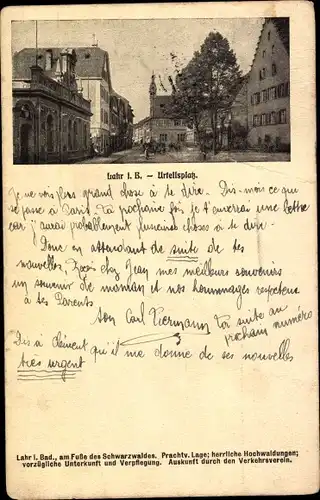 Lahr i. B. — Urteilsplatz.
Je ne vois plus grand chose à te dire. Dis-moi ce qui
se passe à Paris. La prochaine fois je t'enverrai une lettre
car j'aurai probablement plusieurs choses à te dire.
Donc en attendant de suite de tes
nouvelles, reçois cher Jean mes meilleurs souvenirs
un souvenir de maman et nos hommages respectueux
à tes Parents
ton Carl Viermann
La suite au
prochain numéro
Dis à Clément qu'il me donne de ses nouvelles
très urgent
Lahr i. Bad., am Fuße des Schwarzwaldes. Prachtv. Lage; herrliche Hochwaldungen;
vorzügliche Unterkunft und Verpflegung. Auskunft durch den Verkehrsverein.